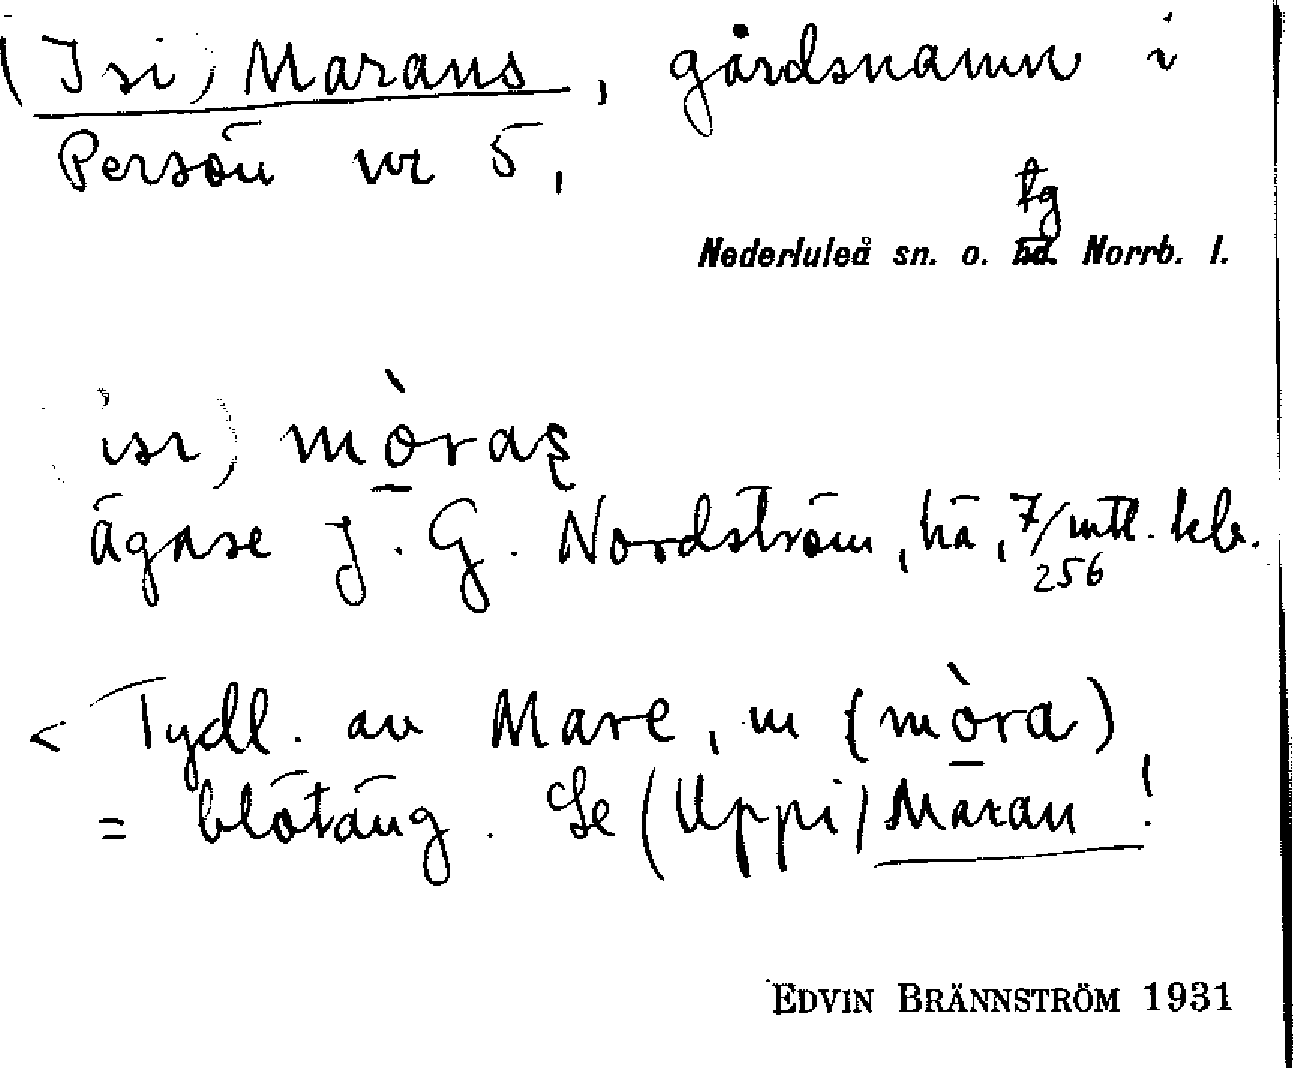 (Isi) Marans, gårdsnamn i
Persön nr 5,
tg
Nederluleå sn. o. hd. Norrb. l.
isr) mòras
ägare J. G. Nordström, hä, 7/256 mtl. kb.
< Tydl. av Mare, m (mòra)
= blötäng. Se (Uppi) Maran!
EDVIN BRÄNNSTRÖM 1931